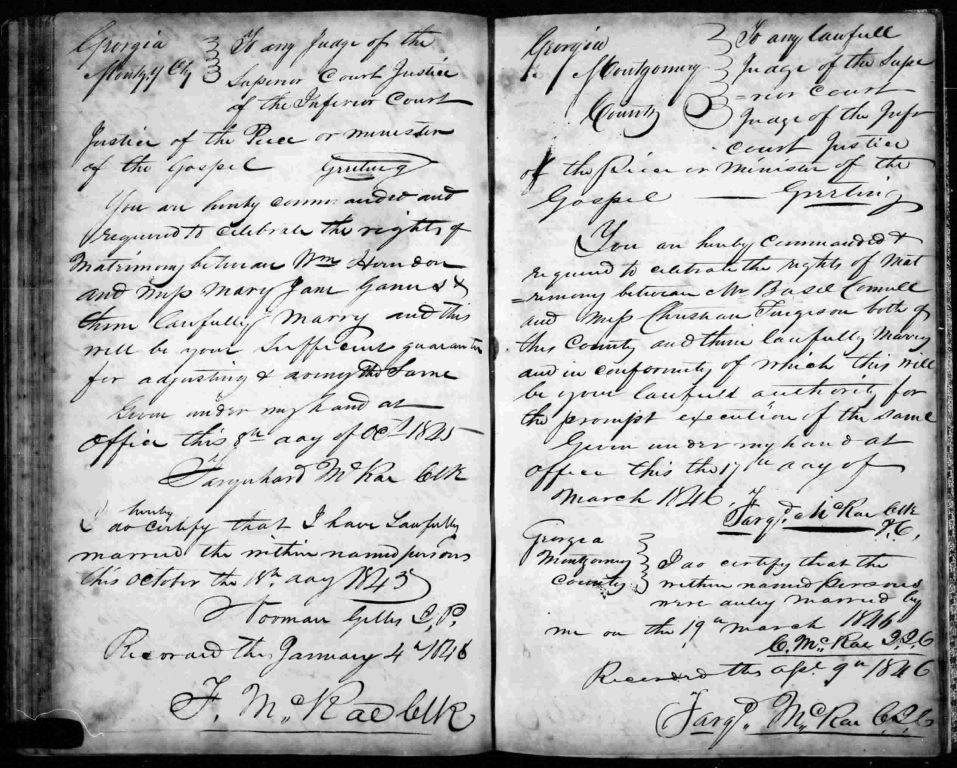 Georgia
Montg,y Cty
To any Judge of the
Superior Court Justice
of the Inferior Court
Justice of the Peece or minister
of the Gospel Greeting
You are hereby commanded and
required to celebrate the rights of
Matrimony between Wm Herndon
and Miss Mary Jane &
them lawfully Marry and this
will be your Sufficient
for adjusting & doing the Same
Given under my hand at
Office this 8th day of Oct 1845
Farquhard McRae Clk
I hereby
do certify that I have Lawfully
married the within named persons
this October the 18th day 1845
Norman Gillis J,P,
Recorded the January 4th 1846
F. McRae Clk
Georgia
Montgomery
County
To any lawfull
Judge of the Supe
=rior Court
Judge of the Infr
Court Justice
of the Piece or Minister of the
Gospel — Greeting
You are hereby Commanded &
required to celebrate the rights of Mat
=remony between Mr Basel
and Miss Christian Furgison both of
this County and them lawfully Marry
and in conformity of which this will
be your lawfull authority for
the prompt execution of the same
Given under my hand at
office this the 17th day of
March 1846,
Farqd. McRae Clk
Georgia
Montgomery
County
I do certify that the
within named persons
were duley married by
me on the 19th march 1846
C. McRae J,I,C
Recorded the apl. 9th 1846
Farqd. McRae